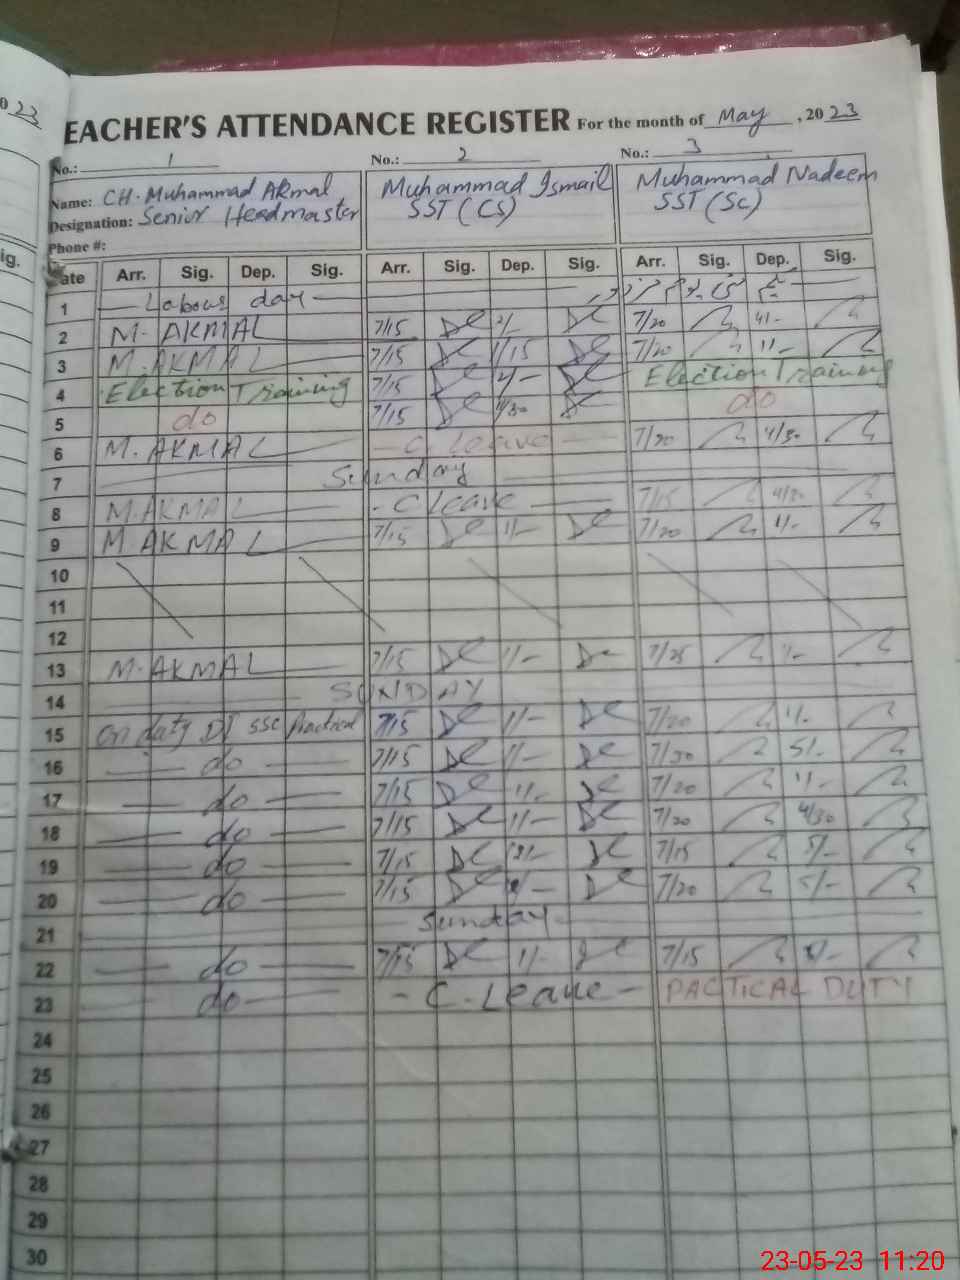 23
EACHER'S ATTENDANCE REGISTER For the month of May, 2023
No.: 1 No.: 2 No.: 3
Name: CH. Muhammad Akmal Muhammad Ismail Muhammad Nadeem
Designation: Senior Headmaster SST (CS) SST (Sc)
Phone #:
ig. ate Arr. Sig. Dep. Sig. Arr. Sig. Dep. Sig. Arr. Sig. Dep. Sig.
1 Labour day
2 M. AKMAL 7/15 7/20 4/-
3 M. AKMAL 7/15 1/15 7/20 1/-
4 Election Training 7/15 2/- Election Training
5 do 7/15 1/30 do
6 M. AKMAL - C. Leave - 7/20 4/30
7 Sunday
8 M. AKMAL - C Leave - 7/15
9 M. AKMAL 7/15 1/- 7/20 1/-
10
11
12
13 M. AKMAL 7/15 1/- 7/25 1/-
14 SUNDAY
15 on duty SSC Practical 7/15 1/- 7/20 1/-
16 do 7/15 1/- 7/30 5/-
17 do 7/15 1/- 7/20 1/-
18 do 7/15 1/- 7/20 4/30
19 do 7/15 7/15 5/-
20 do 7/15 7/20 5/-
21 Sunday
22 do 7/15 1/- 7/15
23 do - C. Leave - PACTICAL DUTY
24
25
26
27
28
29
30
23-05-23 11:20